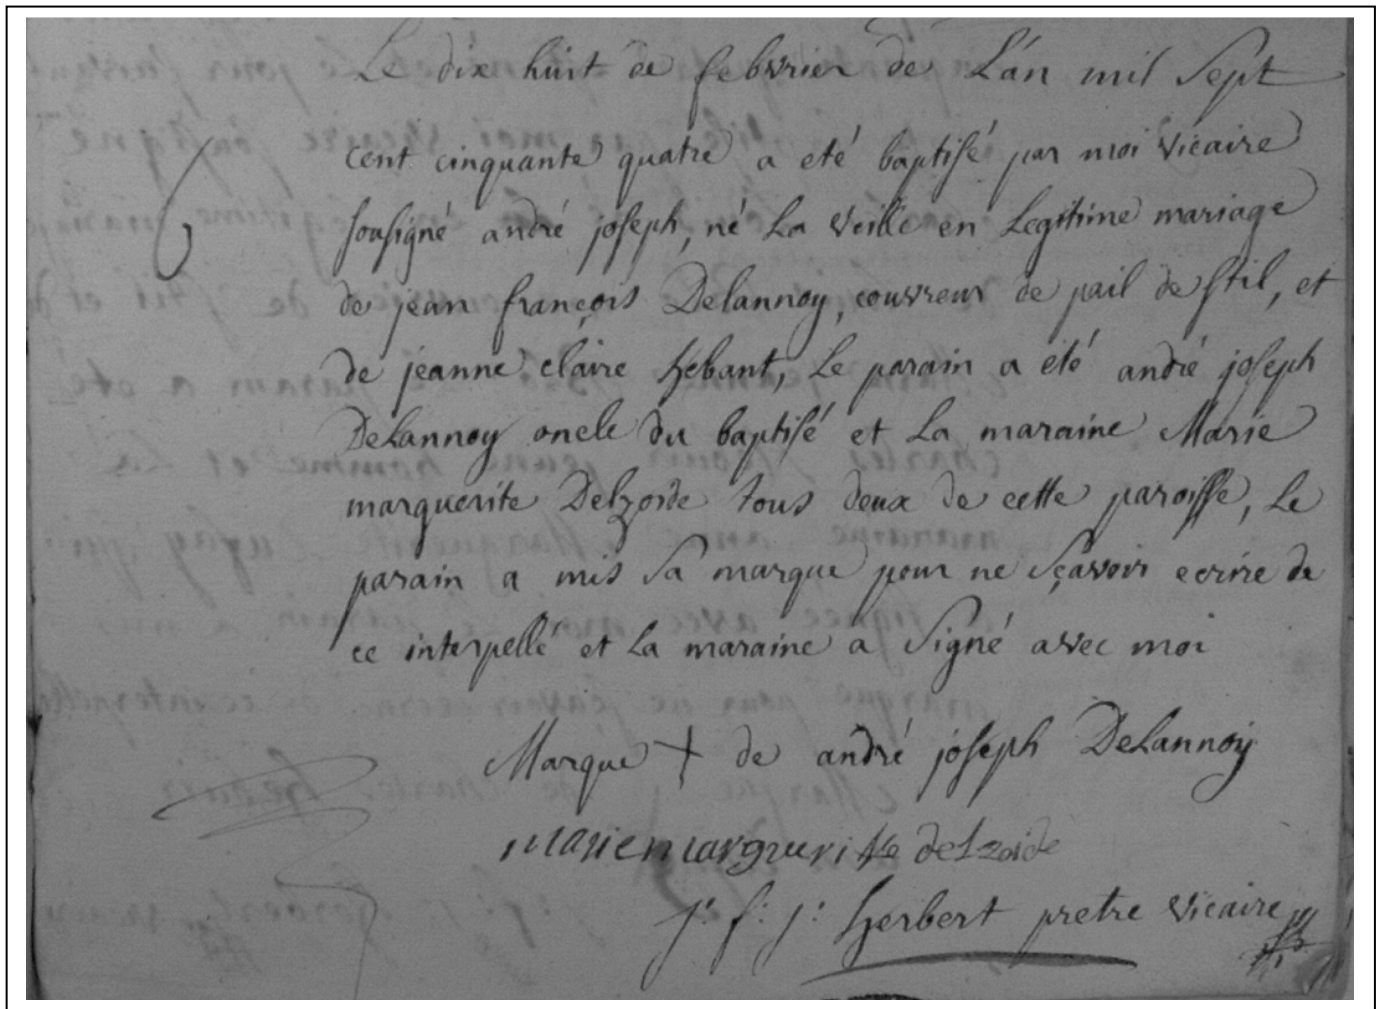 Le dix huit de febvrier de L'an mil Sept
cent cinquante quatre a eté baptisé par moi vicaire
sousigné andré joseph, né La veille en Legitime mariage
de jean françois Delannoy, couvreur de pail de stil, et
de jeanne claire hebant, Le parain a été andré joseph
DeLannoy oncle du baptisé et La maraine Marie
marguerite Delzoide tous deux de cette paroisse, Le
parain a mis Sa marque pour ne Sçavoir ecrire de
ce interpellé et La maraine a Signé avec moi
Marque + de andré joseph DeLannoy
marie margueritte delzoide
j: f: j: herbert pretre vicaire